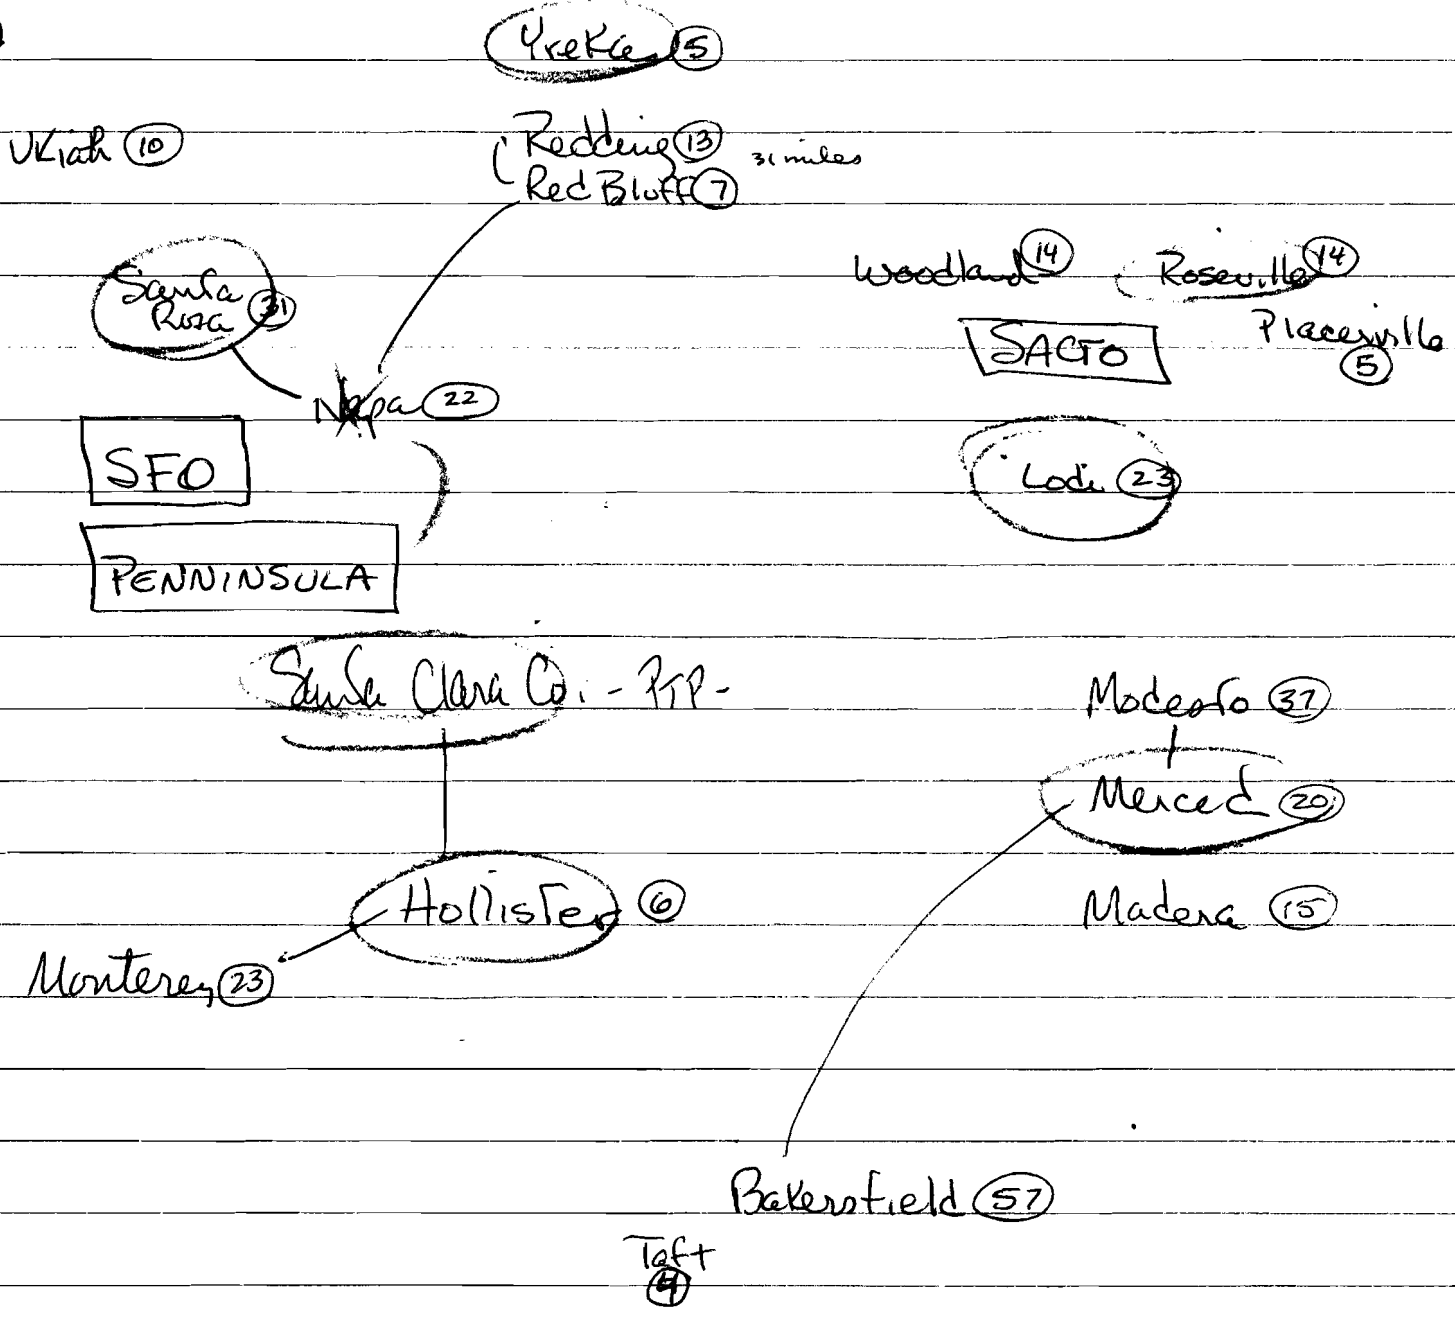 Yreka 5
Ukiah 10
Redding 13
31 miles
Red Bluff 7
Woodland 14
Roseville 14
Santa
Rosa 31
Placerville
5
SACTO
Napa 22
SFO
Lodi 23
PENNINSULA
Santa Clara Co. - PTP -
Modesto 37
Merced 20
Hollister 6
Madera 15
Monterey 23
Bakersfield 57
Taft
4